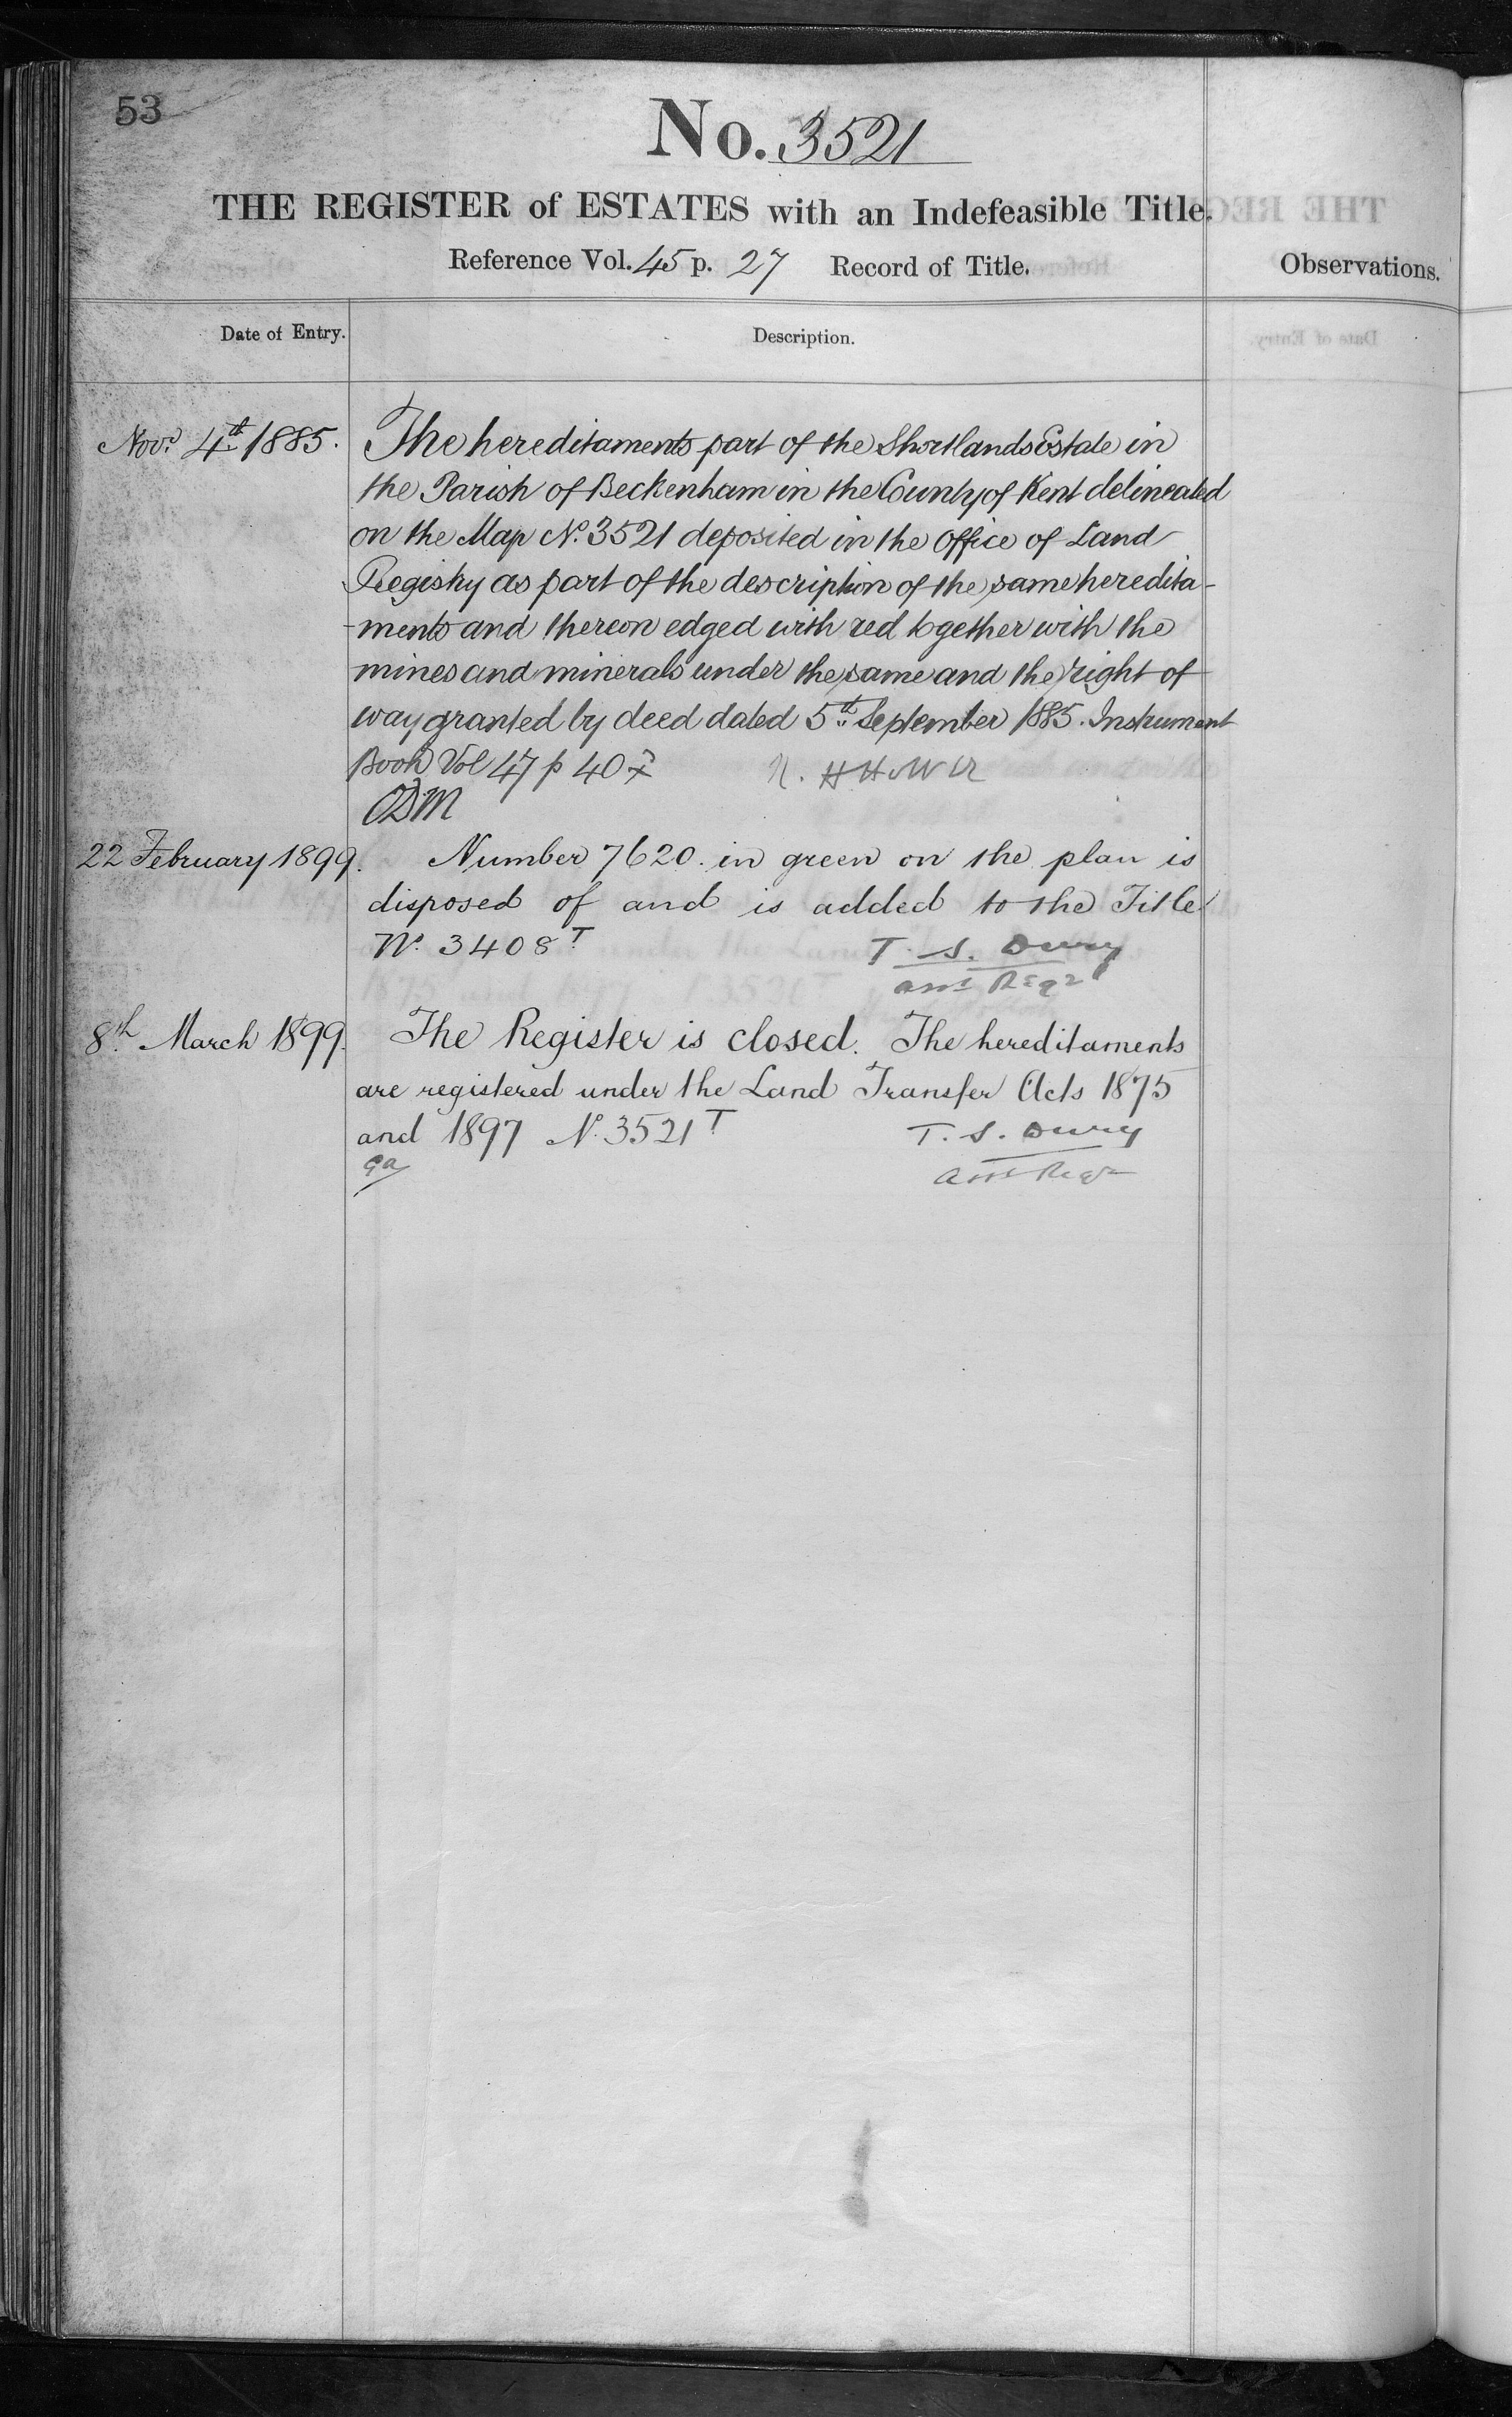 53
No. 3521
THE REGISTER of ESTATES with an Indefeasible Title.
Reference Vol. 45 p. 27 Record of Title.
Observations.
Date of Entry.
Description.
Novr. 4th 1885.
The hereditaments part of the Shortlands Estate in
the Parish of Beckenham in the County of Kent delineated
on the Map No. 3521 deposited in the Office of Land
Registry as part of the description of the same heredita-
-ments and thereon edged with red together with the
mines and minerals under the same and the right of
way granted by deed dated 5th September 1885. Instrument
Book Vol 47 p 40
22 February 1899.
Number 7620. in green on the plan is
disposed of and is added to the Title
No. 3408 T
T. S. Dury
Asst Regr
8th March 1899.
The Register is closed. The hereditaments
are registered under the Land Transfer Acts 1875
and 1897 No. 3521 T
T. S. Dury
Asst Regr